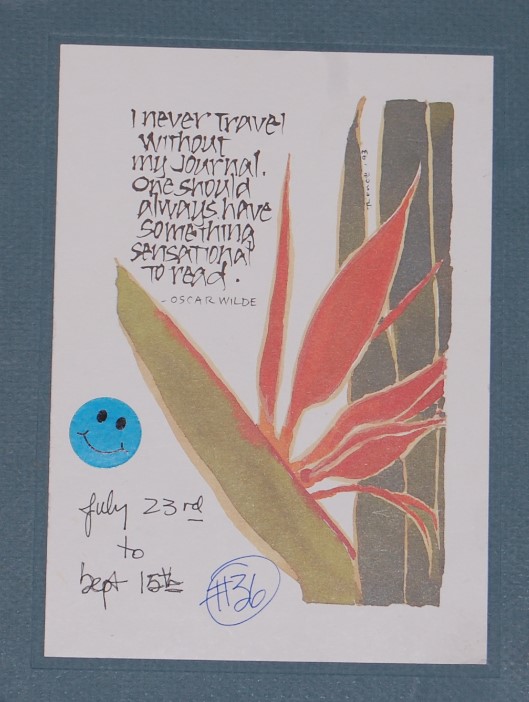 I never travel
without
my journal.
One should
always have
something
sensational
to read.
- OSCAR WILDE
July 23rd
to
Sept 15th
#36